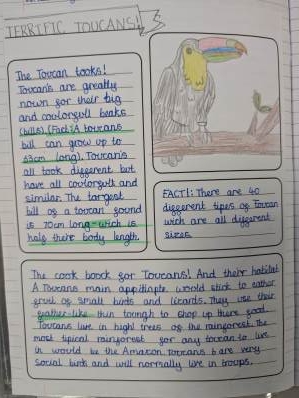 TERRIFIC TOUCANS!
The Toucan looks!
Toucan's are greatly
nown for their big
and coulorgull beaks
(bills). (Fact:A toucans
bill can grow up to
53cm long). Toucan's
all took diggerent but
have all coulorgull and
similar. The largest
bill of a toucan found
is 70cm long-wich is
half their body length.
FACT!: There are 40
different tipes of toucan
wich are all different
sizes.
The cook book for Toucans! And their habitat
A Toucans main would stick to eather
gruit of small birds and lizards. They use their
geather-like thin toungh to chop up there food.
Toucans live in high trees of the rainforest. The
most tipical rainforest for any toucan to live
in would be the Amazon, toucans are very
social bird and will normally live in troups.